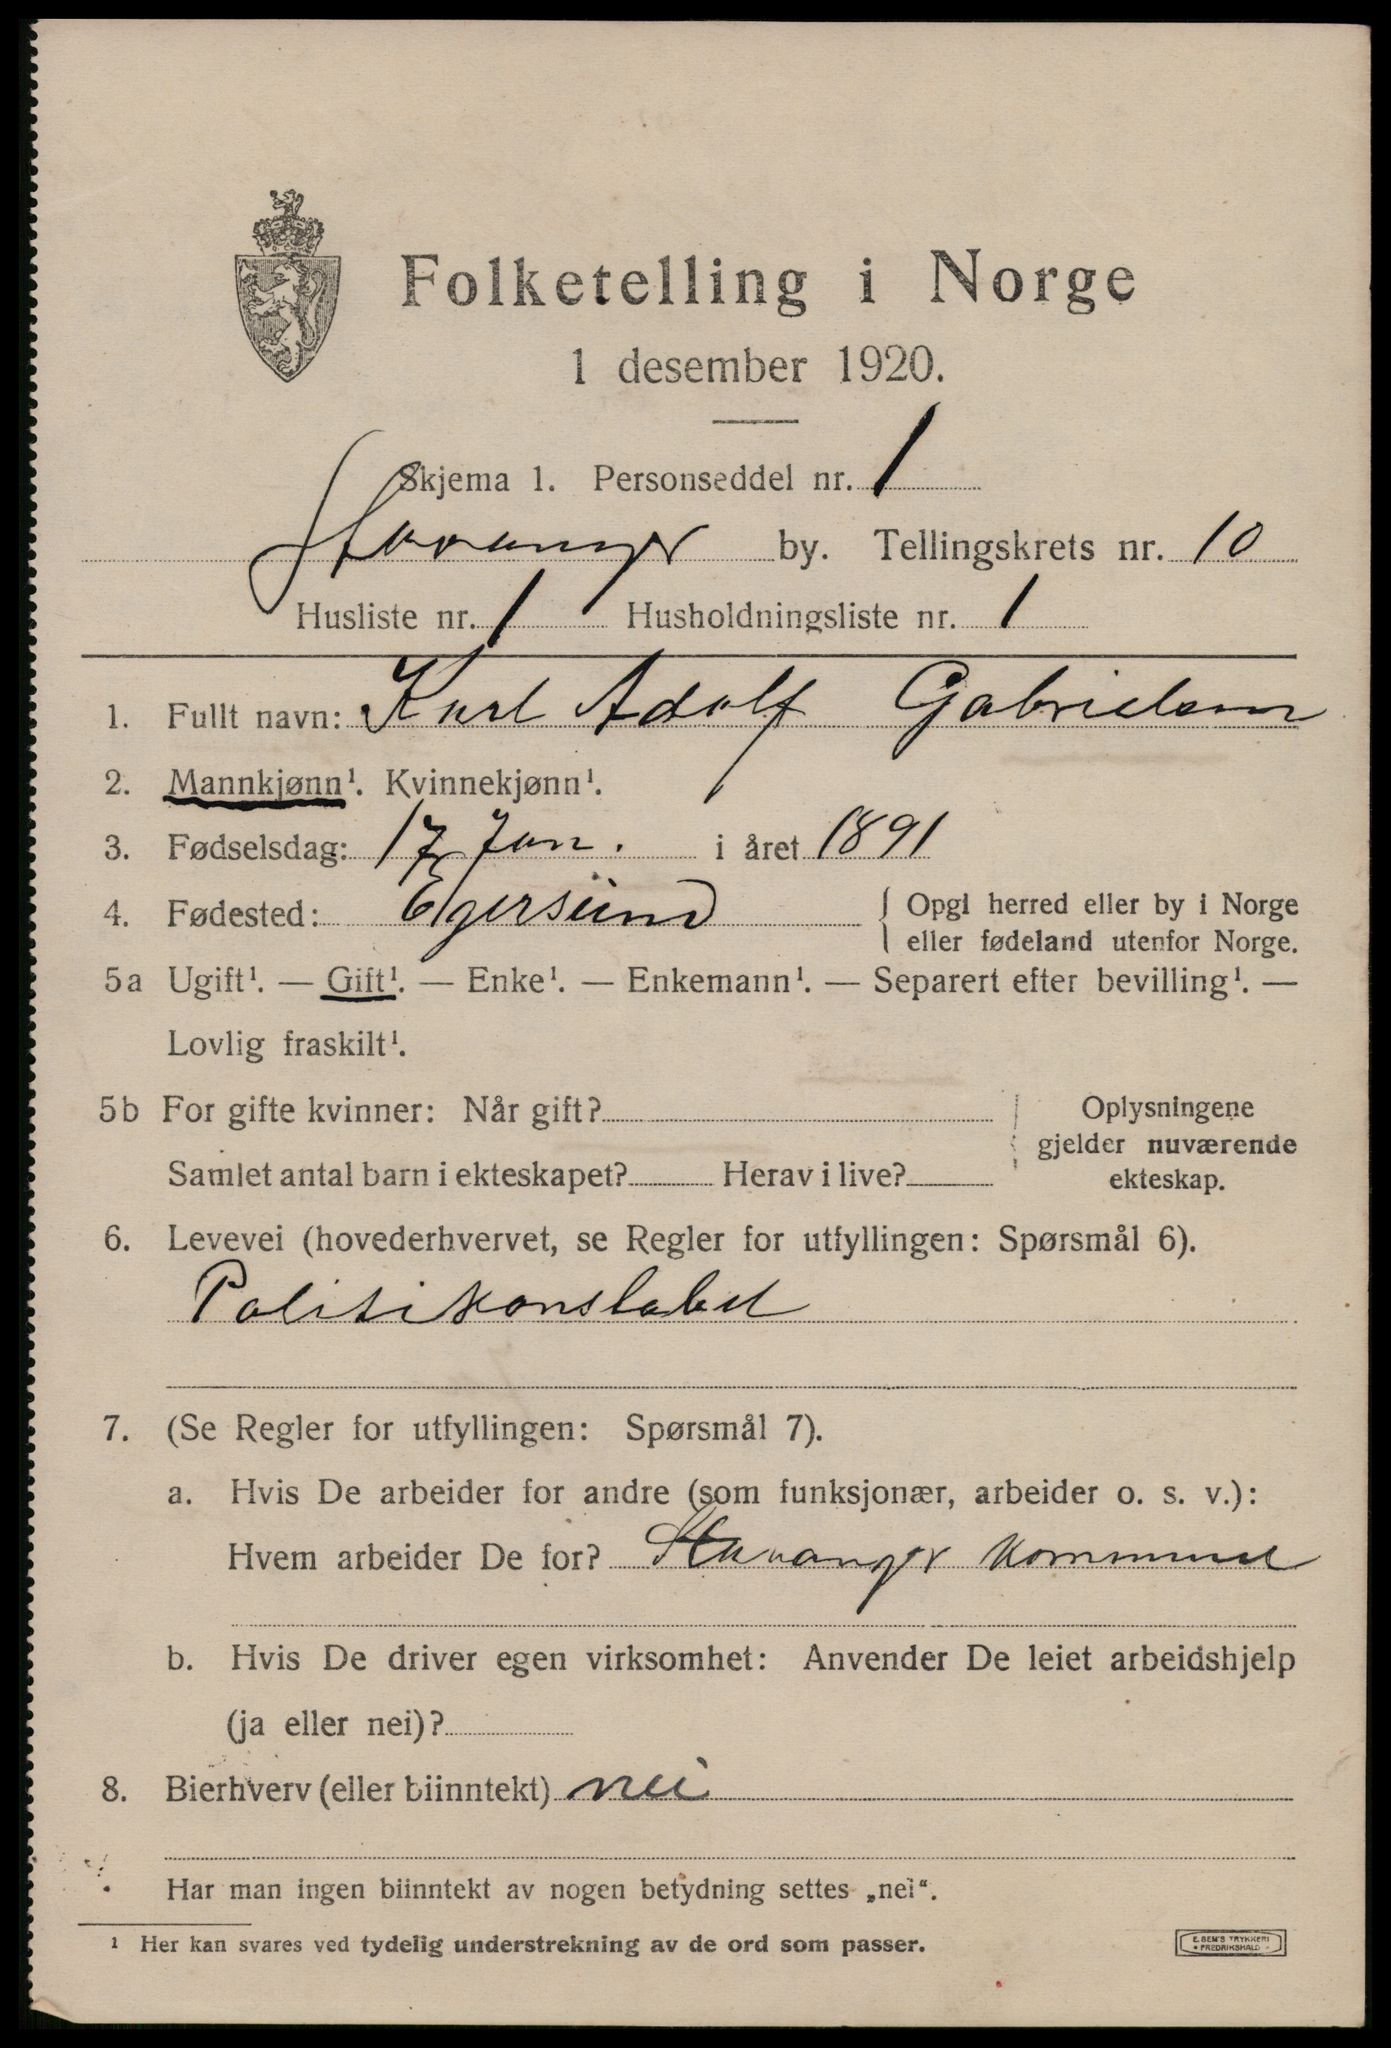 Folketelling i Norge
1 desember 1920.
Skjema 1. Personseddel nr. 1
Stavanger by. Tellingskrets nr. 10
Husliste nr. 1 Husholdningsliste nr. 1
1. Fullt navn: Karl Adolf Gabrielsen
2. Mannkjønn¹. Kvinnekjønn¹.
3. Fødselsdag: 17 Jan. i året 1891
4. Fødested: Egersund { Opgi herred eller by i Norge
eller fødeland utenfor Norge.
5a Ugift¹. — Gift¹. — Enke¹. — Enkemann¹. — Separert efter bevilling¹. —
Lovlig fraskilt¹.
5b For gifte kvinner: Når gift? Oplysningene
gjelder nuværende
Samlet antal barn i ekteskapet? Herav i live? ekteskap.
6. Levevei (hovederhvervet, se Regler for utfyllingen: Spørsmål 6).
Politikonstabel
7. (Se Regler for utfyllingen: Spørsmål 7).
a. Hvis De arbeider for andre (som funksjonær, arbeider o. s. v.):
Hvem arbeider De for? Stavanger kommune
b. Hvis De driver egen virksomhet: Anvender De leiet arbeidshjelp
(ja eller nei)?
8. Bierhverv (eller biinntekt) nei
Har man ingen biinntekt av nogen betydning settes „nei“.
¹ Her kan svares ved tydelig understrekning av de ord som passer.
E. SEM'S TRYKKERI
• FREDRIKSHALD •